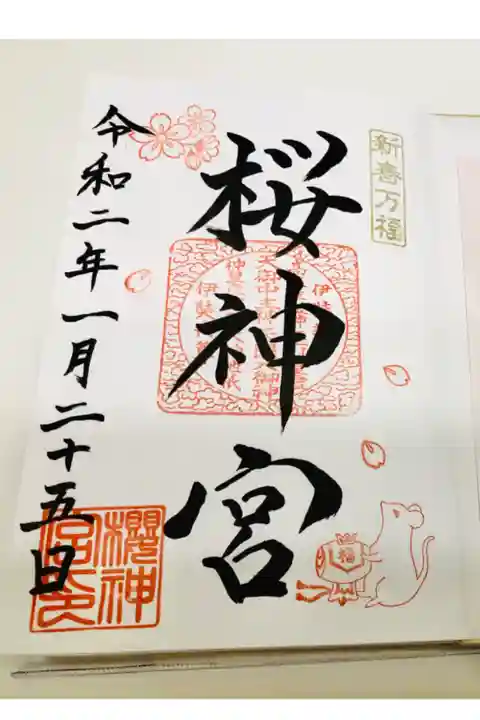 新春万福
桜神宮
令和二年一月二十五日
櫻神
宮印
福